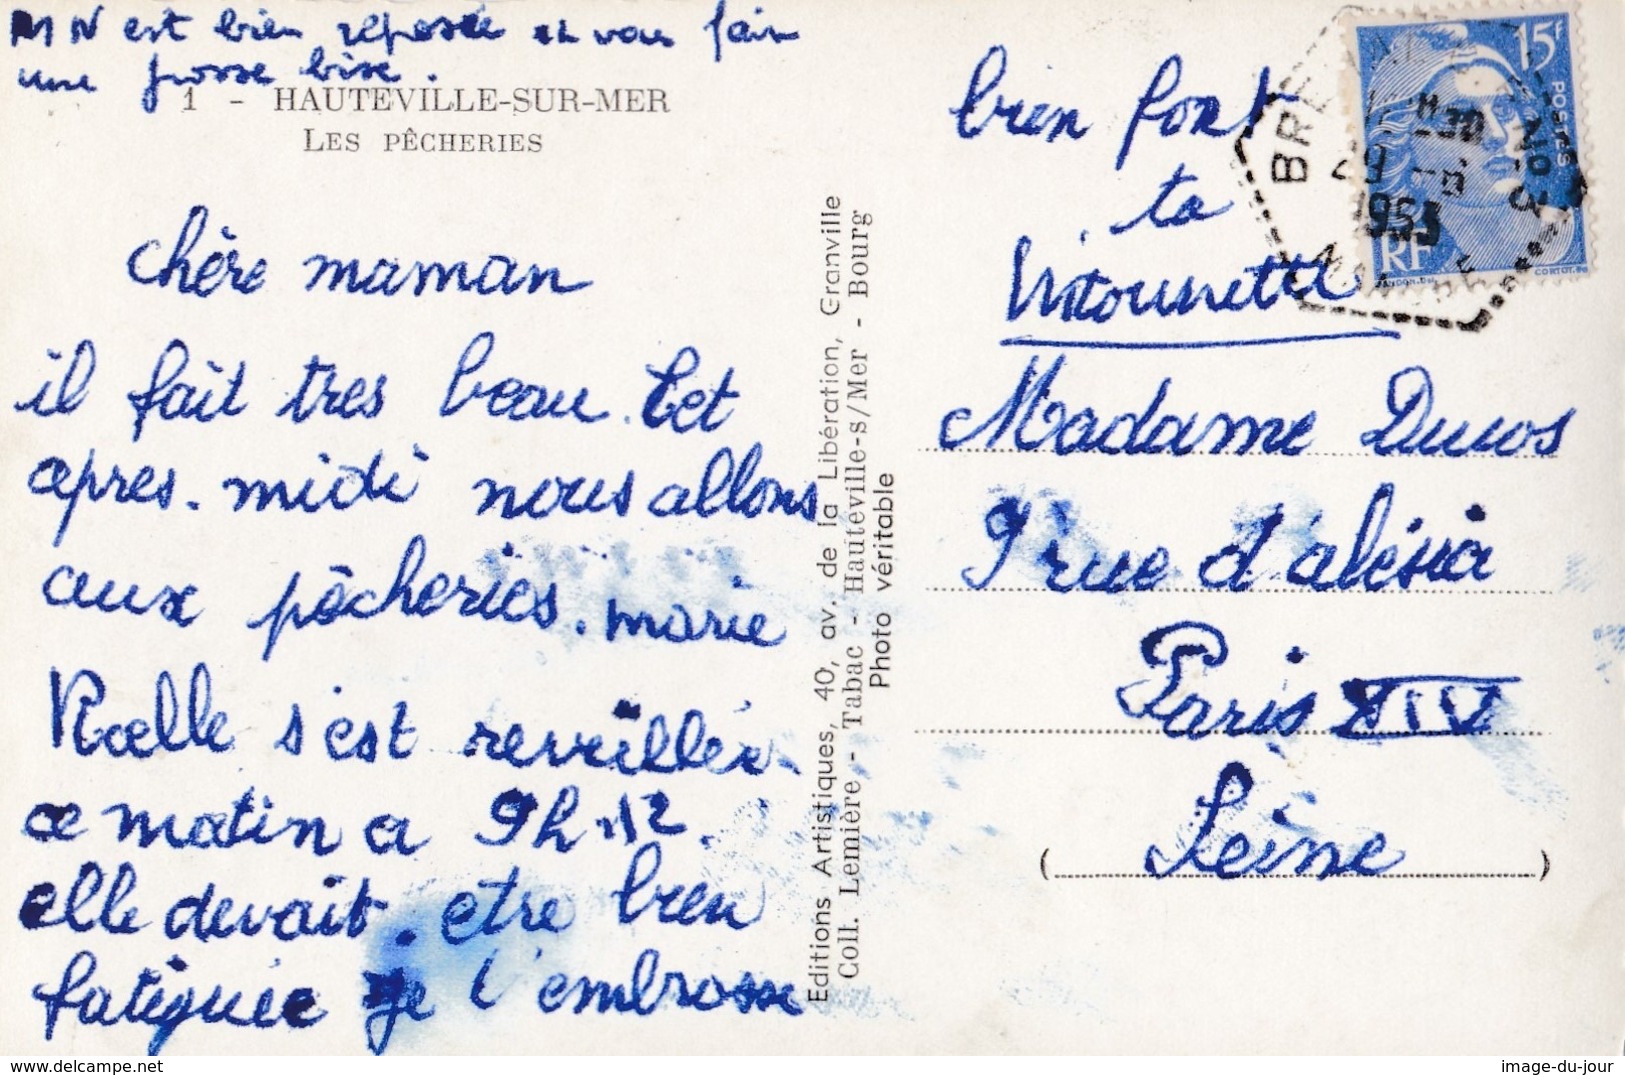 MN est bien reposée et vous fait
une grosse bise.
1 - HAUTEVILLE-SUR-MER
LES PÊCHERIES
chère maman
il fait tres beau. Cet
apres-midi nous allons
aux pêcheries. marie
Noelle s'est reveillée
ce matin a 9h 1/2.
elle devait. etre bien
fatiguée je t'embrasse
Editions Artistiques, 40, av. de la Libération, Granville
Coll. Lemière - Tabac - Hauteville-s/Mer - Bourg
Photo véritable
bien fort
ta
15F
POSTES
RF
GANDON.DEL
CORTOT.SC
29
1953
MANCHE
Madame Ducos
9 rue d'alésia
Paris XIV
(Seine)
image-du-jour